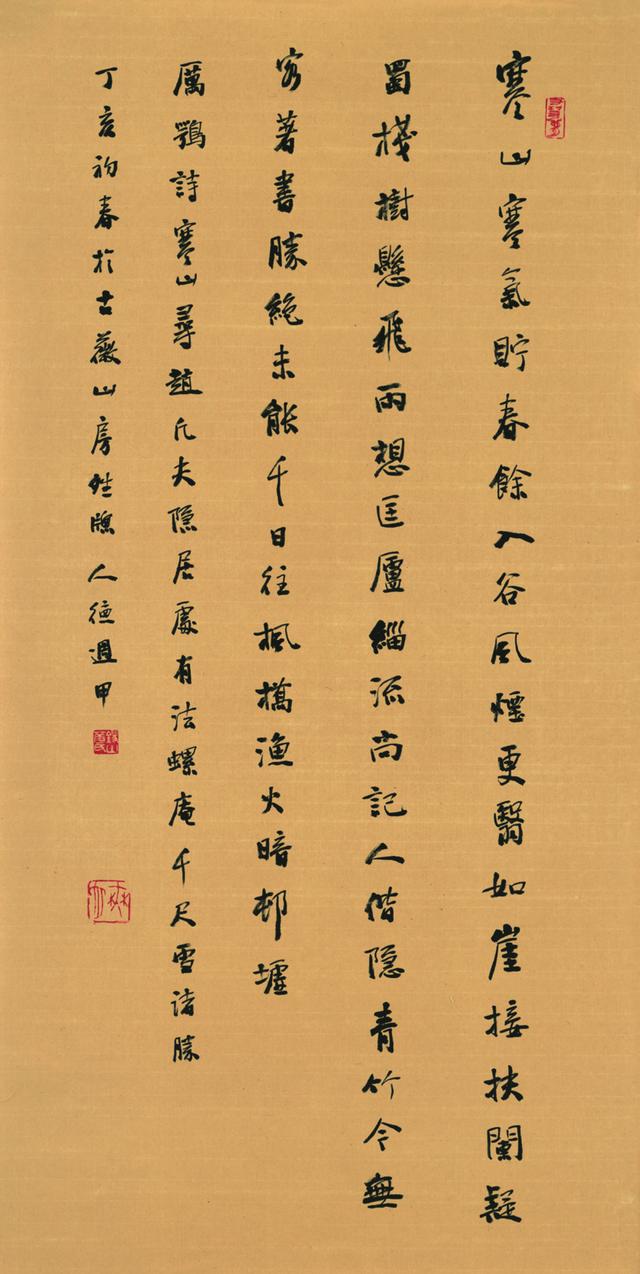 寒山寒氣貯春餘入谷風煙更翳如崖接扶闌疑
蜀棧樹懸飛雨想匡廬緇流尚記人偕隱青竹今無
客著書勝絕未能千日往楓橋漁火暗邨墟
厲鶚詩寒山尋趙凡夫隱居處有法螺庵千尺雪諸勝
丁亥初春於古薇山房牕人德週甲